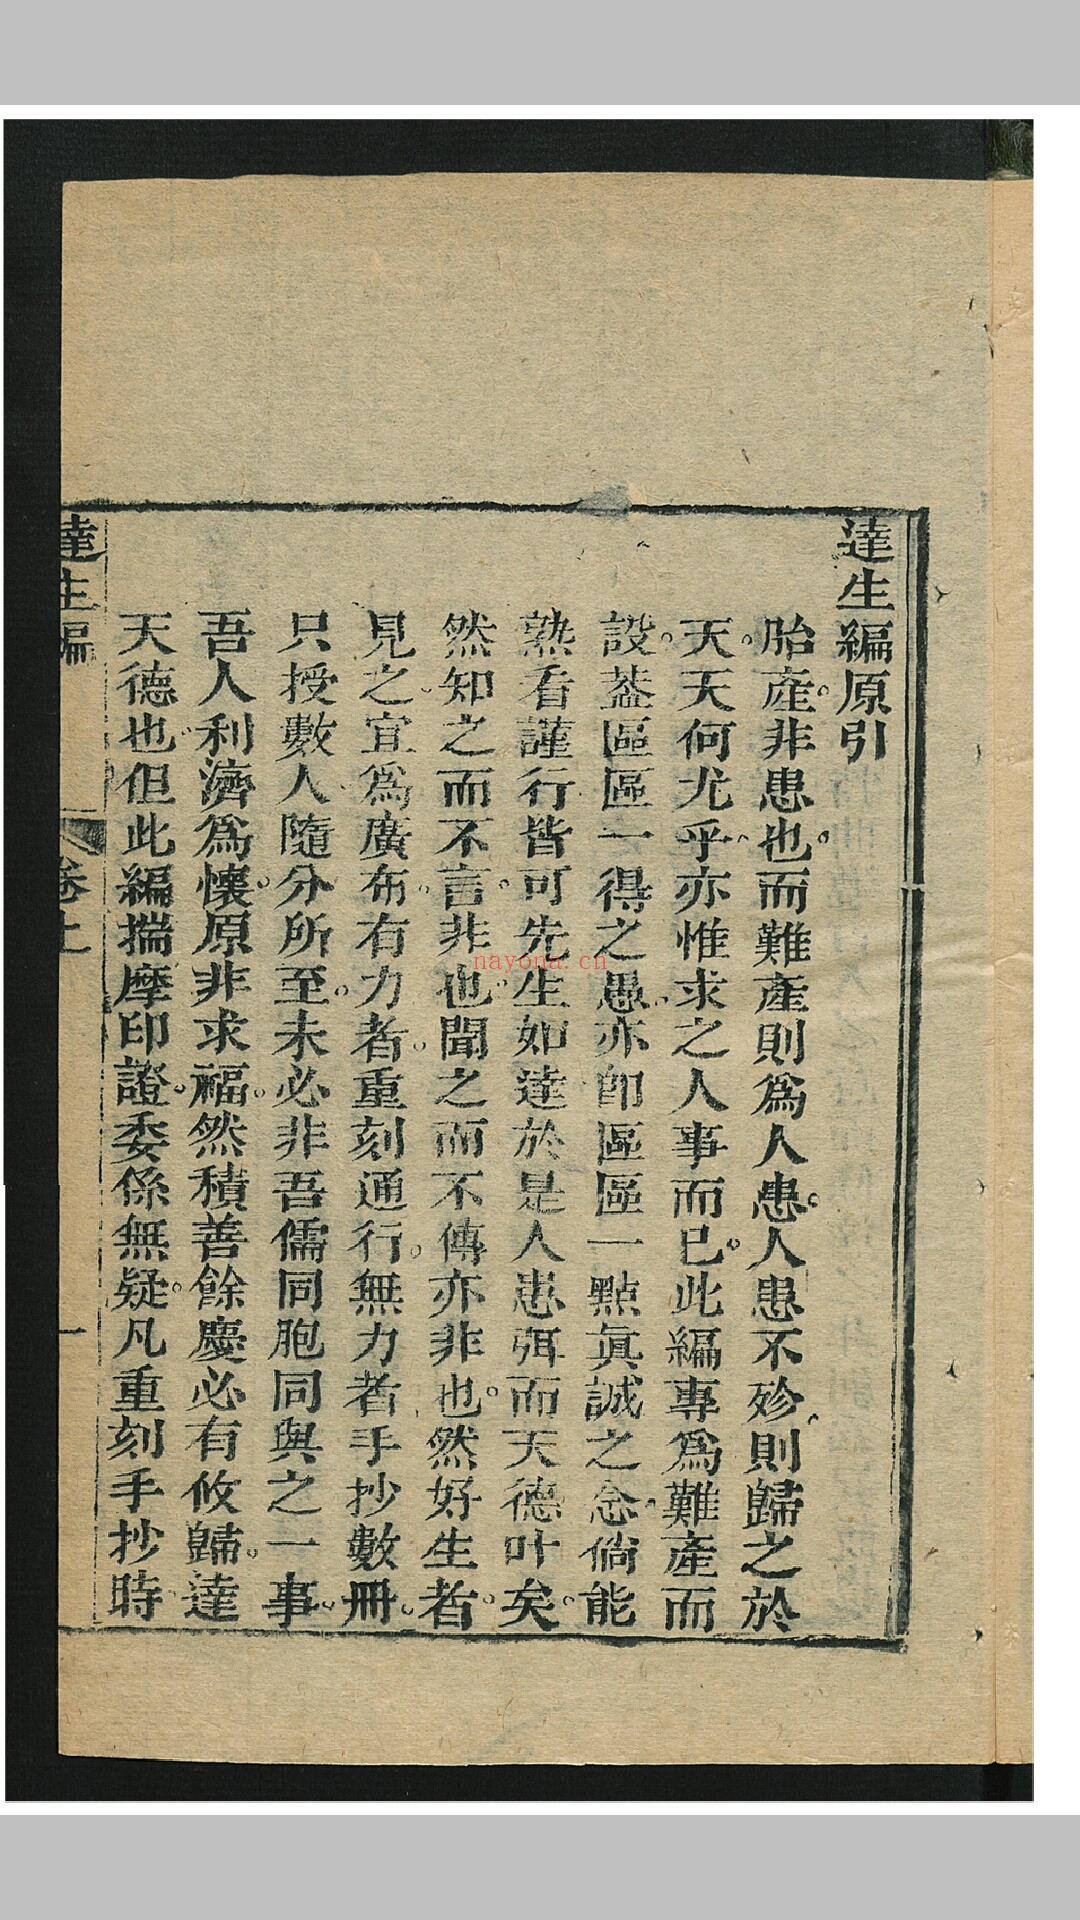 達生編原引
胎產非患也而難產則爲人患人患不殄則歸之於
天天何尤乎亦惟求之人事而已此編專爲難產而
設葢區區一得之愚亦即區區一點眞誠之念倘能
熟看謹行皆可先生如達於是人患弭而天德叶矣
然知之而不言非也聞之而不傳亦非也然好生者
見之宜爲廣布有力者重刻通行無力者手抄數冊
只授數人隨分所至未必非吾儒同胞同與之一事
吾人利濟爲懷原非求福然積善餘慶必有攸歸達
天德也但此編揣摩印證委係無疑凡重刻手抄時
達生編 卷上 一
nayona.cn